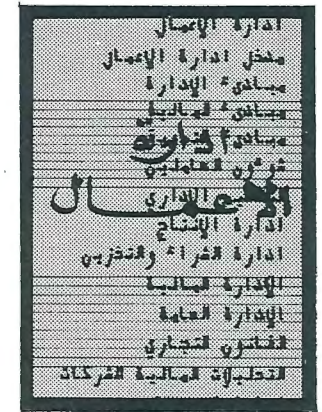 ادارة الاعمال
مدخل ادارة الاعمال
مبادىء الادارة
مبادىء المالية
مبادىء
ادارة
شؤون العاملين
الاداري
الأعمال
ادارة الانتاج
ادارة الشراء والتخزين
الادارة المالية
الادارة العامة
القانون التجاري
التحليلات المالية للشركات